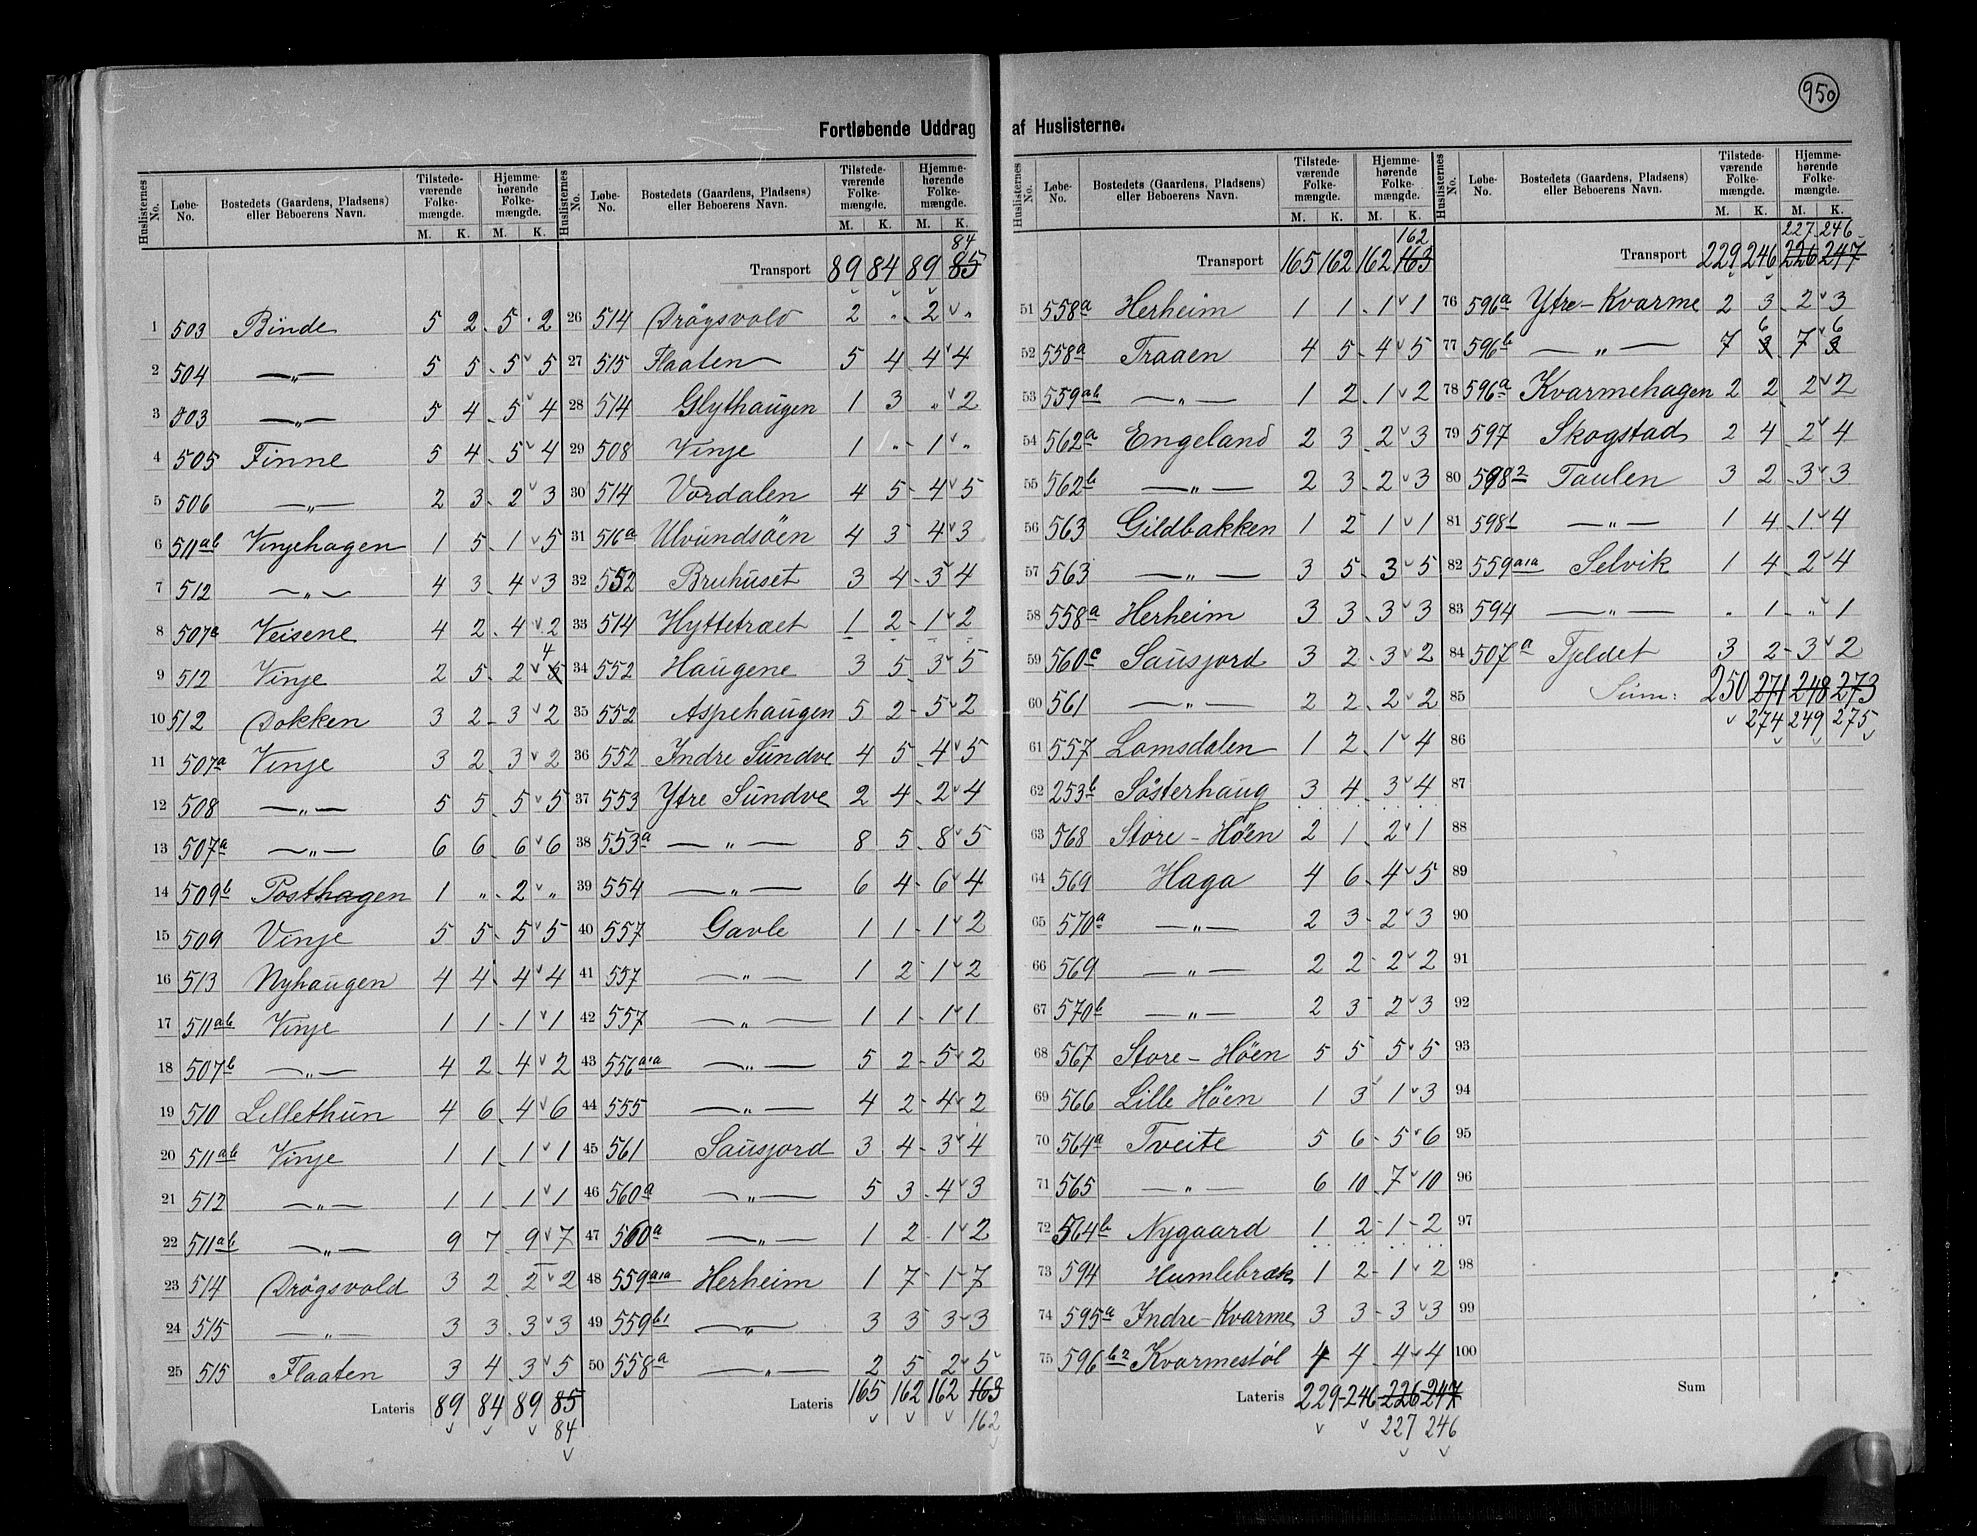 950
Fortløbende Uddrag af Huslisterne.
Huslisternes No. Løbe-No. Bostedets (Gaardens, Pladsens) eller Beboerens Navn. Tilstedeværende Folkemængde. M. K. Hjemmehørende Folkemængde. M. K.
1 503 Binde 5 2 5 2
2 504 —„— 5 5 5 5
3 503 —„— 5 4 5 4
4 505 Finne 5 4 5 4
5 506 —„— 2 3 2 3
6 511ab Vinjehagen 1 5 1 5
7 512 —„— 4 3 4 3
8 507a Veisene 4 2 4 2
9 512 Vinje 2 5 2 5 4
10 512 Dokken 3 2 3 2
11 507a Vinje 3 2 3 2
12 508 —„— 5 5 5 5
13 507a —„— 6 6 6 6
14 509b Posthagen 1 „ 2 „
15 509 Vinje 5 5 5 5
16 513 Nyhaugen 4 4 4 4
17 511ab Vinje 1 1 1 1
18 507b —„— 4 2 4 2
19 510 Lillethun 4 6 4 6
20 511ab Vinje 1 1 1 1
21 512 —„— 1 1 1 1
22 511ab —„— 9 7 9 7
23 514 Drögsvold 3 2 2 2
24 515 —„— 3 3 3 3
25 515 Flaaten 3 4 3 5
Lateris 89 84 89 85
84
Huslisternes No. Løbe-No. Bostedets (Gaardens, Pladsens) eller Beboerens Navn. Tilstedeværende Folkemængde. M. K. Hjemmehørende Folkemængde. M. K.
84
Transport 89 84 89 85
26 514 Drögsvold 2 „ 2 „
27 515 Flaaten 5 4 4 4
28 514 Glythaugen 1 3 „ 2
29 508 Vinje 1 „ 1 „
30 514 Vordalen 4 5 4 5
31 516a Ulvundsöen 4 3 4 3
32 552 Bruhuset 3 4 3 4
33 514 Hyttetræet 1 2 1 2
34 552 Haugene 3 5 3 5
35 552 Aspehaugen 5 2 5 2
36 552 Indre Sundve 4 5 4 5
37 553 Ytre Sundve 2 4 2 4
38 553a —„— 8 5 8 5
39 554 —„— 6 4 6 4
40 557 Gavle 1 1 1 2
41 557 —„— 1 2 1 2
42 557 —„— 1 1 1 1
43 556a1a —„— 5 2 5 2
44 555 —„— 4 2 4 2
45 561 Sausjord 3 4 3 4
46 560a —„— 5 3 4 3
47 560a —„— 1 2 1 2
48 559a1a Herheim 1 7 1 7
49 559b1 —„— 3 3 3 3
50 558a —„— 2 5 2 5
Lateris 165 162 162 163
162
Huslisternes No. Løbe-No. Bostedets (Gaardens, Pladsens) eller Beboerens Navn. Tilstedeværende Folkemængde. M. K. Hjemmehørende Folkemængde. M. K.
162
Transport 165 162 162 163
51 558a Herheim 1 1 1 1
52 558a Traaen 4 5 4 5
53 559ab —„— 1 2 1 2
54 562a Engeland 2 3 2 3
55 562b —„— 2 3 2 3
56 563 Gildbakken 1 2 1 1
57 563 —„— 3 5 3 5
58 558a Herheim 3 3 3 3
59 560c Sausjord 3 2 3 2
60 561 —„— 2 2 2 2
61 557 Lomsdalen 1 2 1 4
62 253b Sösterhaug 3 4 3 4
63 568 Store-Höen 2 1 2 1
64 569 Haga 4 6 4 5
65 570a —„— 2 3 2 3
66 569 —„— 2 2 2 2
67 570b —„— 2 3 2 3
68 567 Store-Höen 5 5 5 5
69 566 Lille Höen 1 3 1 3
70 564a Tveite 5 6 5 6
71 565 —„— 6 10 7 10
72 564b Nygaard 1 2 1 2
73 594 Humlebræk 1 2 1 2
74 595a Indre-Kvarme 3 3 3 3
75 596b2 Kvarmestöl 4 4 4 4
Lateris 229 246 226 247
227 246
Huslisternes No. Løbe-No. Bostedets (Gaardens, Pladsens) eller Beboerens Navn. Tilstedeværende Folkemængde. M. K. Hjemmehørende Folkemængde. M. K.
227 246
Transport 229 246 226 247
76 596a Ytre-Kvarme 2 3 2 3
77 596b —„— 7 3 6 7 3 6
78 596a Kvarmehagen 2 2 2 2
79 597 Skogstad 2 4 2 4
80 598 2 Taulen 3 2 3 3
81 598 1 —„— 1 4 1 4
82 559a1a Selvik 1 4 2 4
83 594 —„— „ 1 „ 1
84 507a Tjeldet 3 2 3 2
85 Sum: 250 271 248 273
274 249 275
86
87
88
89
90
91
92
93
94
95
96
97
98
99
100
Sum